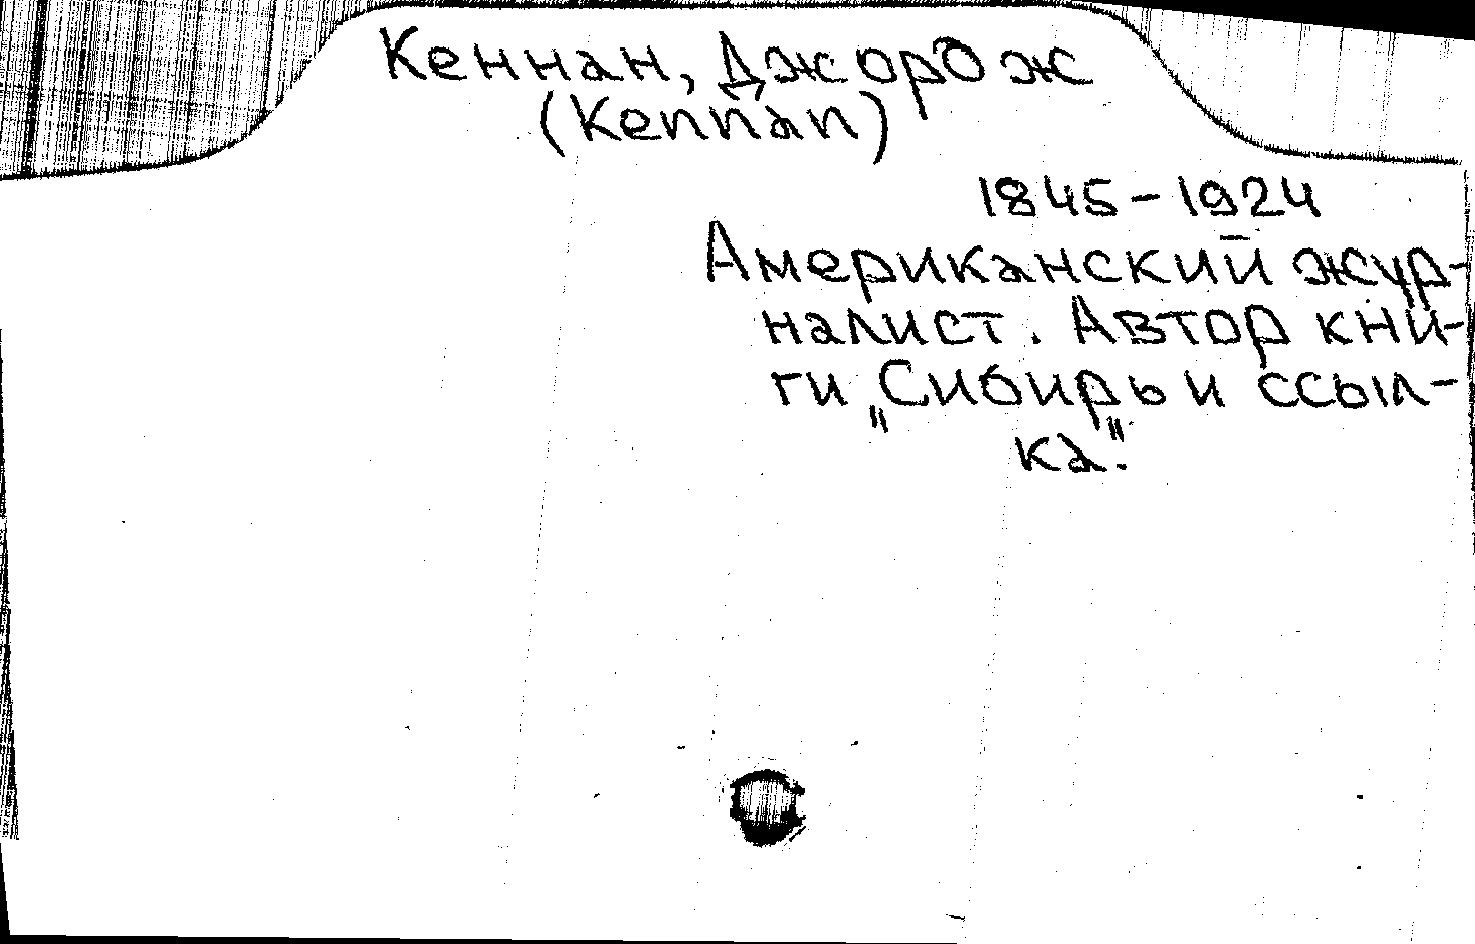 Кеннан, Джордж
(Kennan)
1845-1924
Американский жур-
налист. Автор кни-
ги „Сибирь и ссыл-
ка".